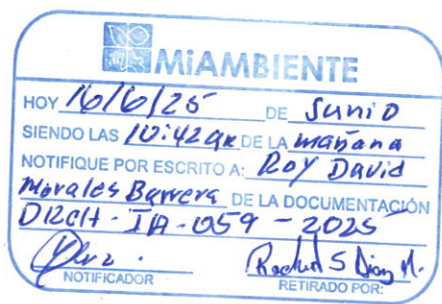 MiAMBIENTE
HOY 16/6/25 DE Junio
SIENDO LAS 10:42 am DE LA mañana
NOTIFIQUE POR ESCRITO A: Roy David
Morales Barrera DE LA DOCUMENTACIÓN
DRCH-IA-059-2025
NOTIFICADOR
S Diaz M.
RETIRADO POR: